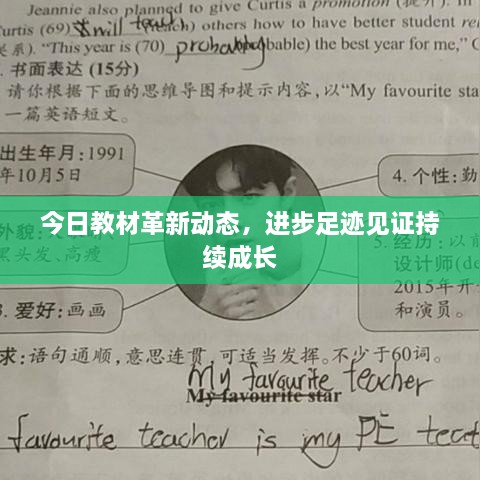 Jeannie also planned to give Curtis a promotion (提升). In
Curtis (69) will teach (teach) others how to have better student
关系). "This year is (70) probably (probable) the best year for me," C
书面表达 (15分)
请你根据下面的思维导图和提示内容,以“My favourite sta
一篇英语短文。
出生年月:1991
年10月5日
4. 个性:勤
今日教材革新动态，进步足迹见证持
续成长
外貌:
黑头发、高瘦
5. 经历:以前
设计师(de
2015年开
和演员。
3. 爱好:画画
求:语句通顺,意思连贯,可适当发挥。不少于60词。
My favourite teacher
My favourite star
favourite teacher is my PE teac